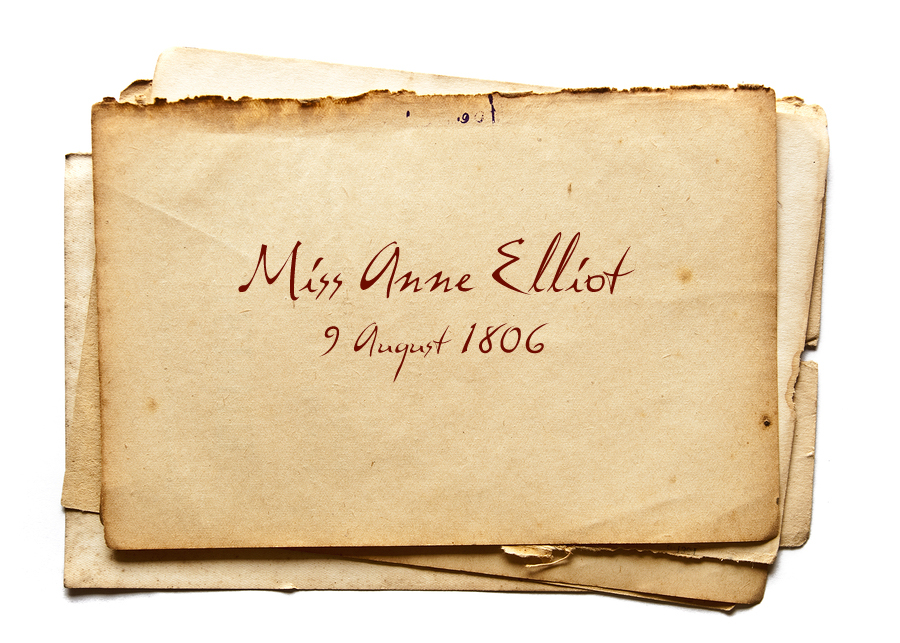 Miss Anne Elliot
9 August 1806